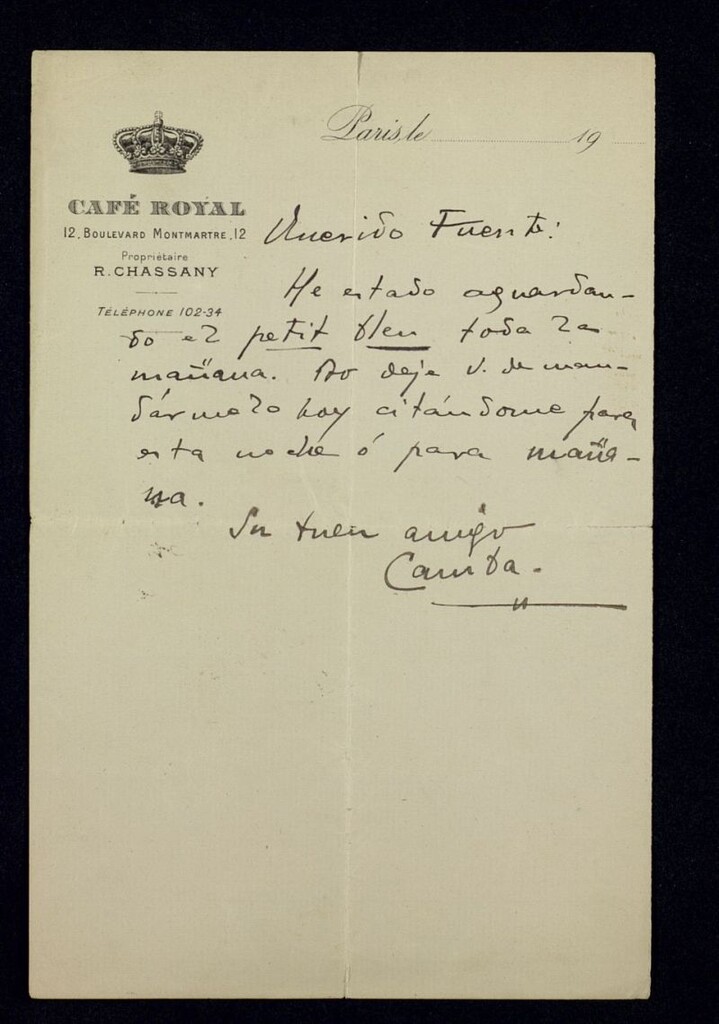 Paris, le 19
CAFÉ ROYAL
12, BOULEVARD MONTMARTRE, 12
Propriétaire
R. CHASSANY
TÉLÉPHONE 102-34
Querido Fuente:
He estado aguardan-
do el petit bleu toda la
mañana. No deje V. de man-
dármelo hoy citándome para
esta noche ó para maña-
na.
Su buen amigo
Camba.